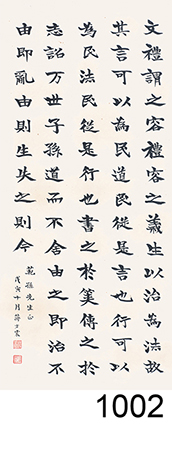 文禮謂之容禮容之義生以治為法故
其言可以為民道民從是言也行可以
為民法民從是行也書之於箋傳之於
志詔万世子孫道而不舍由之即治不
由即亂由則生失之則今
先生正
戊寅十月
1002